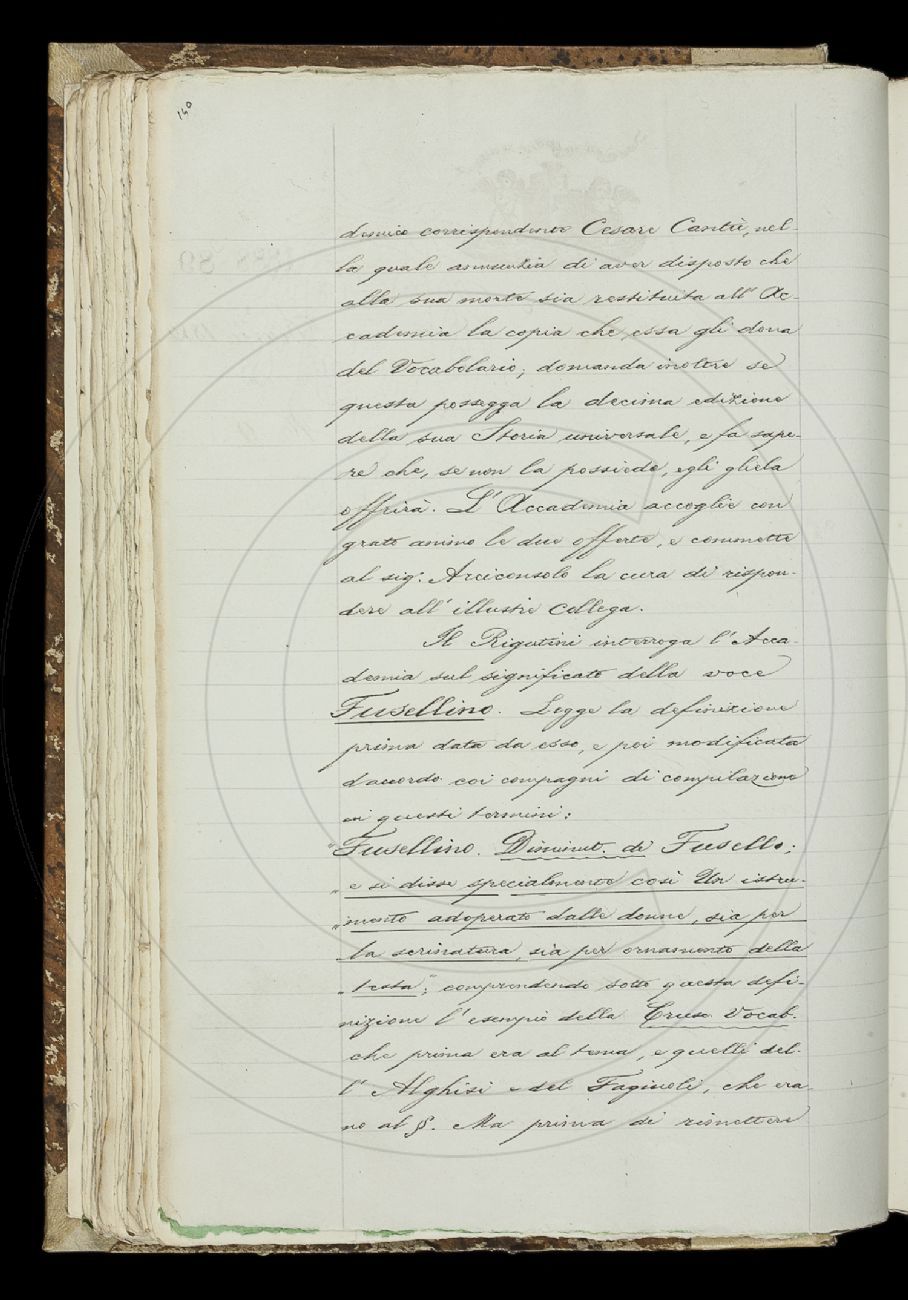 140
demico corrispondente Cesare Cantù, nel-
la quale annunzia di aver disposto che
alla sua morte sia restituita all'Ac-
cademia la copia che essa gli dona
del Vocabolario; domanda inoltre se
questa possegga la decima edizione
della sua Storia universale, e fa sape-
re che, se non la possiede, egli gliela
offrirà. L'Accademia accoglie con
grato animo le due offerte, e commette
al sig. Arciconsolo la cura di rispon-
dere all'illustre collega.
Il Rigutini interroga l'Acca-
demia sul significato della voce
Fusellino. Legge la definizione
prima data da esso, e poi modificata
d'accordo coi compagni di compilazione
in questi termini:
"Fusellino. Diminut. di Fusello;
"e si disse specialmente così Un istru-
"mento adoperato dalle donne, sia per
"la scrinatura, sia per ornamento della
"testa"; comprendendo sotto questa defi-
nizione l'esempio della Crusc. Vocab.
che prima era al tema, e quelli del-
l'Alghisi e del Fagiuoli, che era-
no al §. Ma prima di rimettere